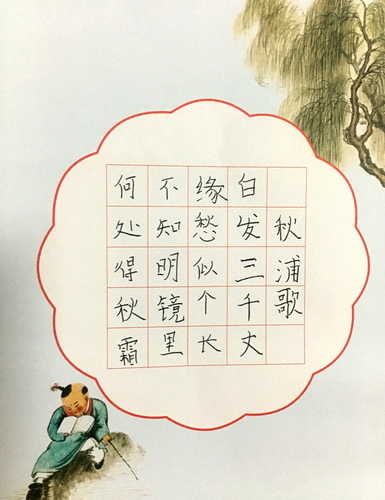 秋浦歌
白发三千丈
缘愁似个长
不知明镜里
何处得秋霜